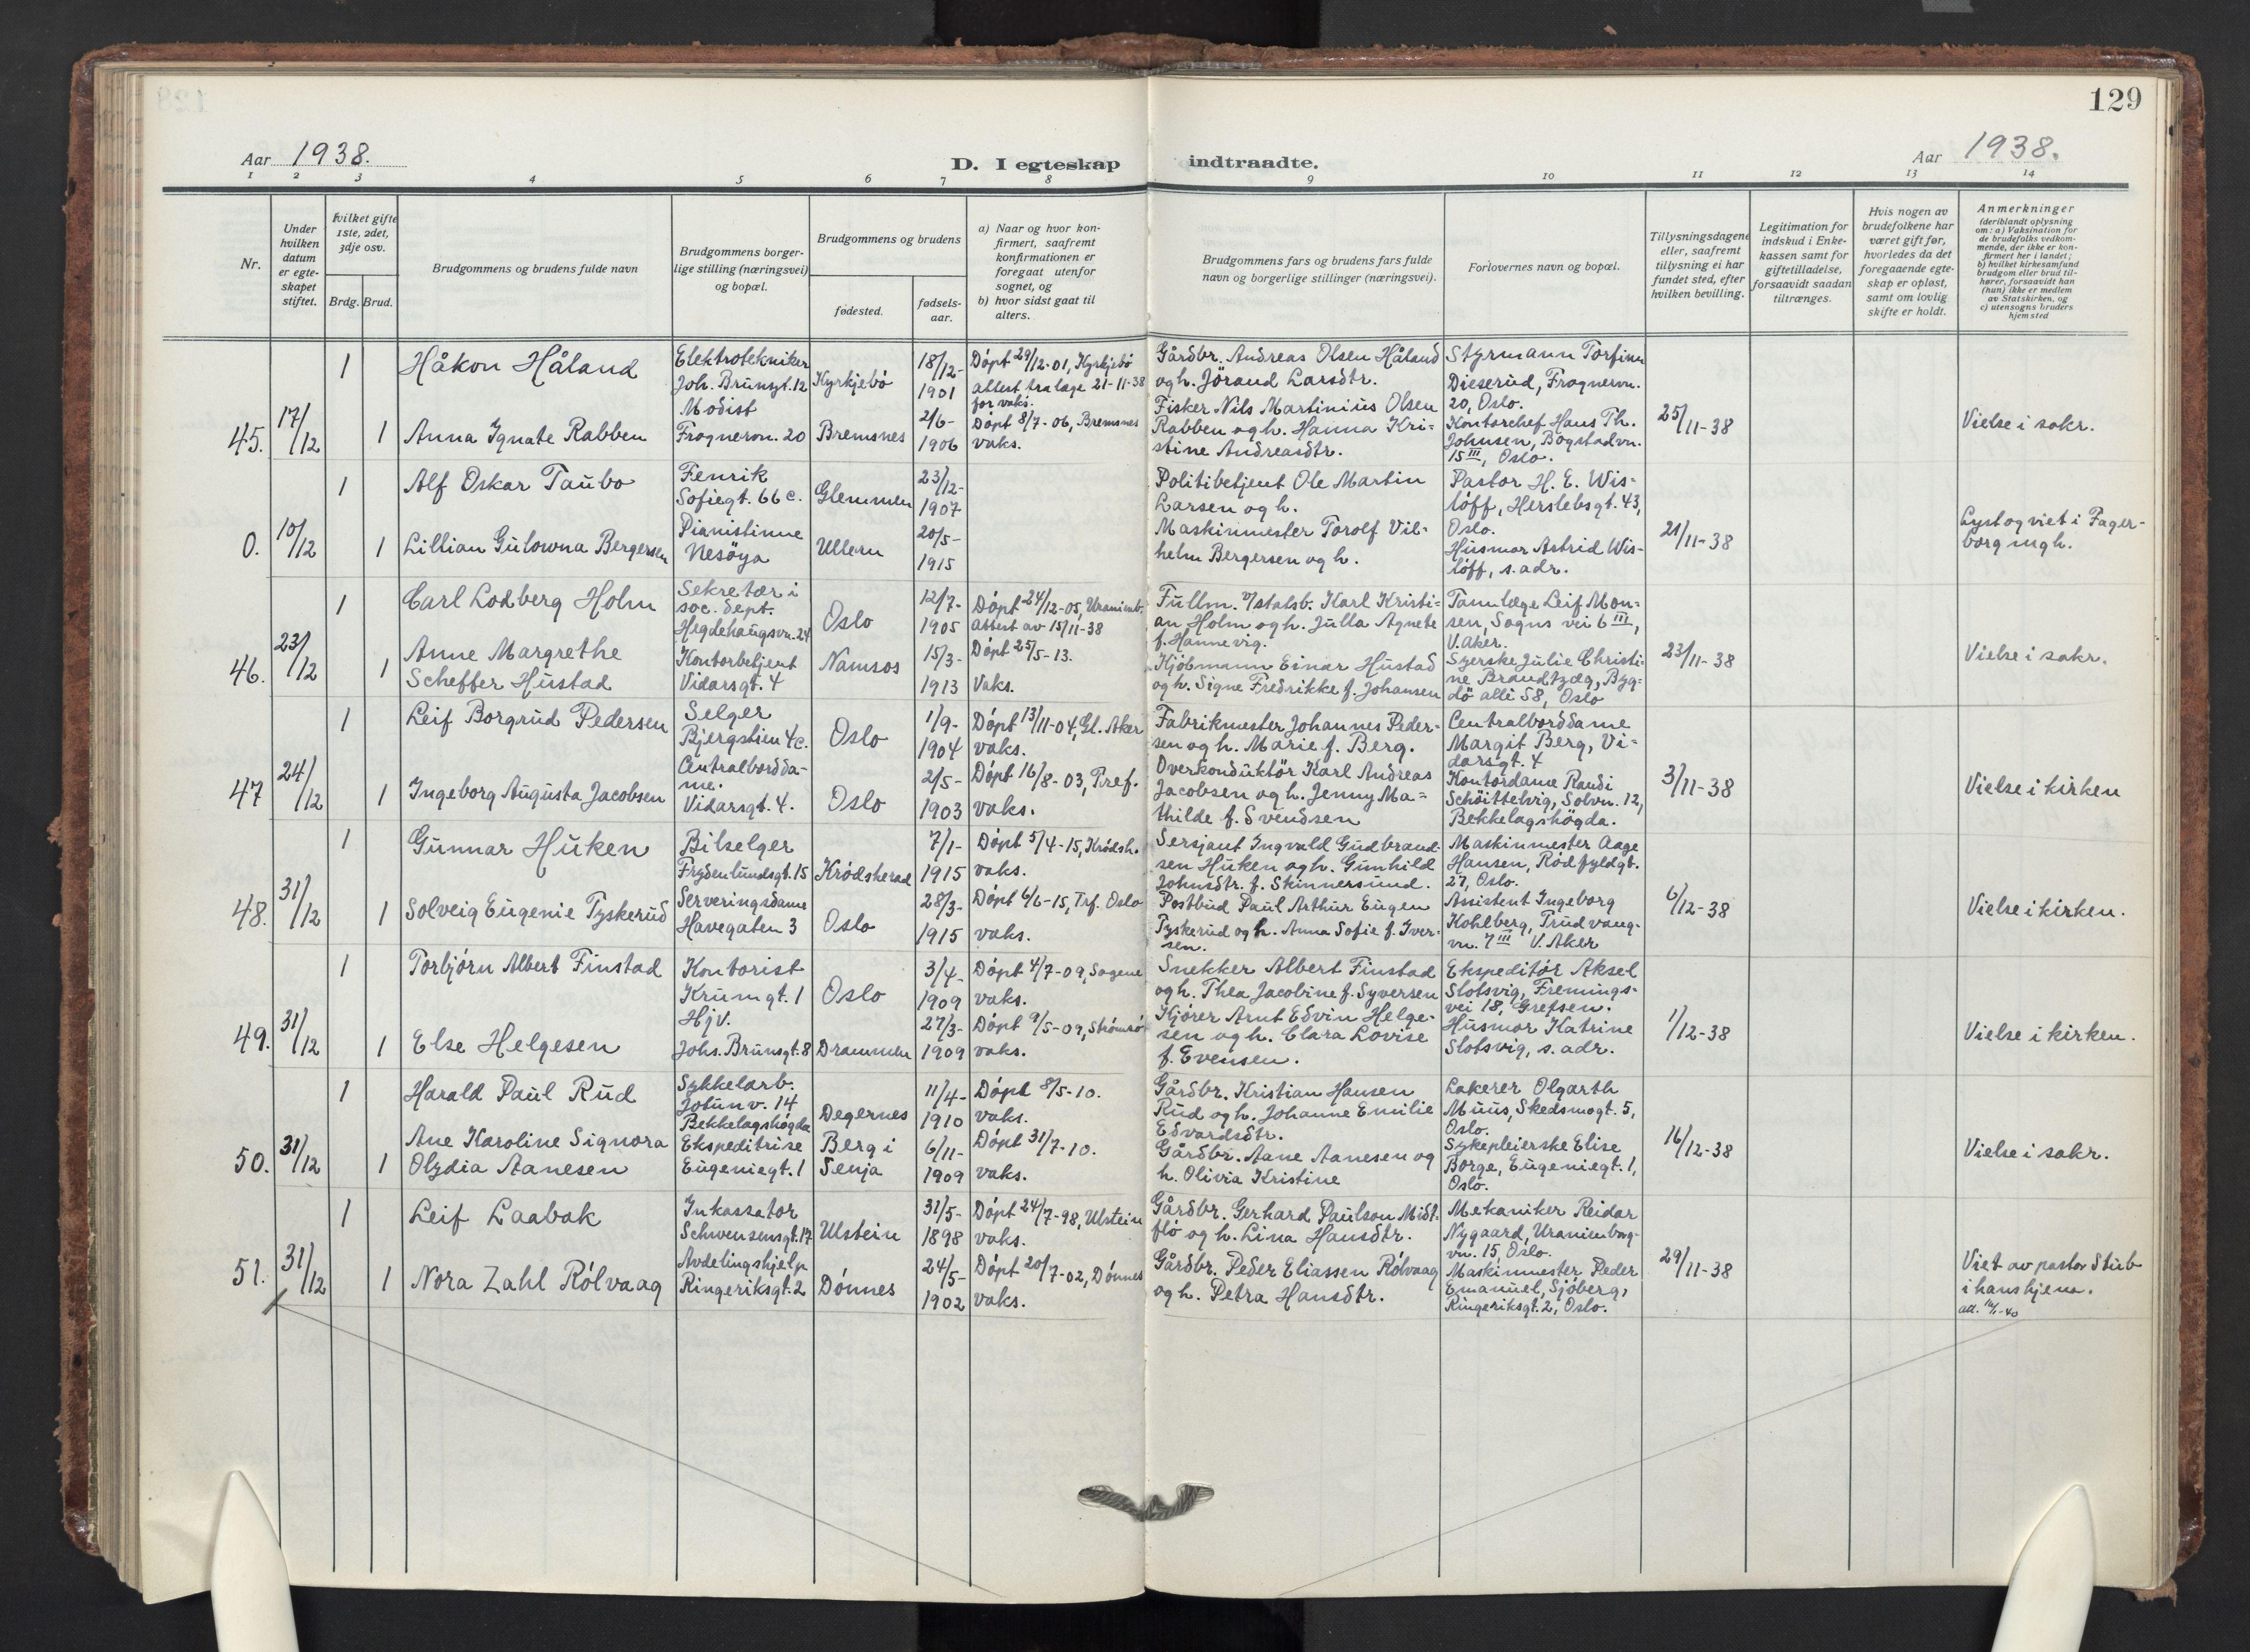 129
Aar 1938.
D. I egteskap indtraadte.
Aar 1938.
1 2 3 4 5 6 7 8 9 10 11 12 13 14
Nr.
Under hvilken datum er egteskapet stiftet.
Hvilket gifte 1ste, 2det, 3dje osv.
Brdg. Brud.
Brudgommens og brudens fulde navn
Brudgommens borgerlige stilling (næringsvei) og bopæl.
Brudgommens og brudens
fødested.
fødselsaar.
a) Naar og hvor konfirmert, saafremt konfirmationen er foregaat utenfor sognet, og
b) hvor sidst gaat til alters.
Brudgommens fars og brudens fars fulde navn og borgerlige stillinger (næringsvei).
Forlovernes navn og bopæl.
Tillysningsdagene eller, saafremt tillysning ei har fundet sted, efter hvilken bevilling.
Legitimation for indskud i Enkekassen samt for giftetilladelse, forsaavidt saadan tiltrænges.
Hvis nogen av brudefolkene har været gift før, hvorledes da det foregaaende egteskap er opløst, samt om lovlig skifte er holdt.
Anmerkninger
(deriblandt oplysning om: a) Vaksination for de brudefolks vedkommende, der ikke er konfirmert her i landet; b) hvilket kirkesamfund brudgom eller brud tilhører, forsaavidt han (hun) ikke er medlem av Statskirken, og c) utensogns bruders hjemsted
45. 17/12
1 Håkon Håland
Elektrotekniker
Joh. Brunsgt. 12
Kyrkjebö
18/12-1901
Döpt 29/12-01, Kyrkjebö
attest fra lege 21-11-38
for vaks.
Gårdbr. Andreas Olsen Håland
og h. Jörand Larsdtr.
Styrmann Torfinn
Dieserud, Frognervn.
20, Oslo.
1 Anna Ignate Rabben
Modist
Frognervn. 20
Bremsnes
2/6-1906
Döpt 8/7-06, Bremsnes
vaks.
Fisker Nils Martinius Olsen
Rabben og h. Hanna Kri=
stine Andreasdtr.
Kontorchef Hans Th.
Johnsen, Bogstadvn.
15 III, Oslo.
25/11-38
Vielse i sakr.
0. 10/12
1 Alf Oskar Taubo
Fenrik
Sofiegt. 66 c.
Glemmen
23/12-1907
Politibetjent Ole Martin
Larsen og h.
Pastor H. E. Wis-
löff, Herslebsgt. 43,
Oslo.
1 Lillian Gulowna Bergersen
Pianistinne
Nesöya
Ullern
20/5-1915
Maskinmester Torolf Vil=
helm Bergersen og h.
Husmor Astrid Wis-
löff, s. adr.
21/11-38
Lyst og viet i Fager-
borg mgh.
46. 23/12
1 Carl Lodberg Holm
Sekretær i
soc. dept.
Hegdehaugsvn. 24
Oslo
12/7-1905
Döpt 24/12-05, Uranienb.
attest av 15/11-38
Fullm. v/statsb. Karl Kristi=
an Holm og h. Julla Agnete
f. Hannevig.
Tannlege Leif Mon-
sen, Sogns vei 6 III,
V. Aker.
1 Anne Margrethe
Scheffer Hustad
Kontorbetjent
Vidarsgt. 4
Namsos
15/3-1913
Döpt 25/5-13.
Vaks.
Kjöbmann Einar Hustad
og h. Signe Fredrikke f. Johansen
Syerske Julie Christi=
ne Brandtzæg, Byg=
dö allé 58, Oslo
23/11-38
Vielse i sakr.
47 24/12
1 Leif Borgrud Pedersen
Selger
Bjergstien 4c.
Oslo
1/9-1904
Döpt 13/11-04, Gl. Aker
vaks.
Fabrikmester Johannes Peder-
sen og h. Marie f. Berg.
Centralborddame
Margit Berg, Vi-
darsgt. 4
1 Ingeborg Augusta Jacobsen
Centralbordda-
me.
Vidarsgt. 4.
Oslo
2/5-1903
Döpt 16/8-03, Tref.
vaks.
Overkonduktör Karl Andreas
Jacobsen og h. Jenny Ma=
thilde f. Svendsen
Kontordame Randi
Schöittelvig, Solvn. 12,
Bekkelagshögda.
3/11-38
Vielse i kirken
48. 31/12
1 Gunnar Huken
Bilselger
Frydenlundsgt. 15
Krödsherad
7/1-1915
Döpt 5/4-15, Krödsh.
vaks.
Sersjant Ingvald Gudbrand-
sen Huken og h. Gunhild
Johnsdtr. f. Skinnersund.
Maskinmester Aage
Hansen, Rödfyldgt.
27, Oslo.
1 Solveig Eugenie Tyskerud
Serveringsdame
Havegaten 3
Oslo
28/3-1915
Döpt 6/6-15, Trf. Oslo
vaks.
Postbud Paul Arthur Eugen
Tyskerud og h. Anna Sofie f. Iver-
sen.
Assistent Ingeborg
Kohlberg, Trudvang-
vn. 7 III V. Aker
6/12-38
Vielse i kirken.
49. 31/12
1 Torbjörn Albert Finstad
Kontorist
Krumgt. 1
Oslo
3/4-1909
Döpt 4/7-09, Sagene
vaks.
Snekker Albert Finstad
og h. Thea Jacobine f. Syversen
Ekspeditör Aksel
Slotsvig, Fremings-
vei 18, Grefsen.
1 Else Helgesen
Hjv.
Johs. Brunsgt. 8
Drammen
27/3-1909
Döpt 9/5-09, Strömsö
vaks.
Kjörer Arnt Edvin Helge-
sen og h. Clara Lovise
f. Evensen.
Husmor Katrine
Slotsvig, s. adr.
1/12-38
Vielse i kirken.
50. 31/12
1 Harald Paul Rud
Sykkelarb.
Jotunv. 14
Bekkelagshögda
Degernes
11/4-1910
Döpt 8/5-10.
vaks.
Gårdbr. Kristian Hansen
Rud og h. Johanne Emilie
Edvardsdtr.
Lakerer Olgarth
Muus, Skedsmogt. 5,
Oslo.
1 Ane Karoline Signora
Olydia Aanesen
Ekspeditrise
Eugeniegt. 1
Berg i
Senja
6/11-1909
Döpt 31/7-10.
vaks.
Gårdbr. Aane Aanesen og
h. Olivia Kristine
Sykepleierske Elise
Borge, Eugeniegt. 1,
Oslo.
16/12-38
Vielse i sakr.
51. 31/12
1 Leif Laabak
Inkassator
Schwensensgt. 17
Ulstein
31/5-1898
Döpt 24/7-98, Ulstein
vaks.
Gårdbr. Gerhard Paulson Midt-
flö og h. Lina Hansdtr.
Mekaniker Reidar
Nygaard, Uranienborg-
vn. 15, Oslo.
1 Nora Zahl Rölvaag
Avdelingshjelp
Ringeriksgt. 2
Dönnes
24/5-1902
Döpt 20/7-02, Dönnes
vaks.
Gårdbr. Peder Eliassen Rölvaag
og h. Petra Hansdtr.
Maskinmester Peder
Emanuel Sjöberg,
Ringeriksgt. 2, Oslo.
29/11-38
Viet av pastor Stub
i hans hjem.